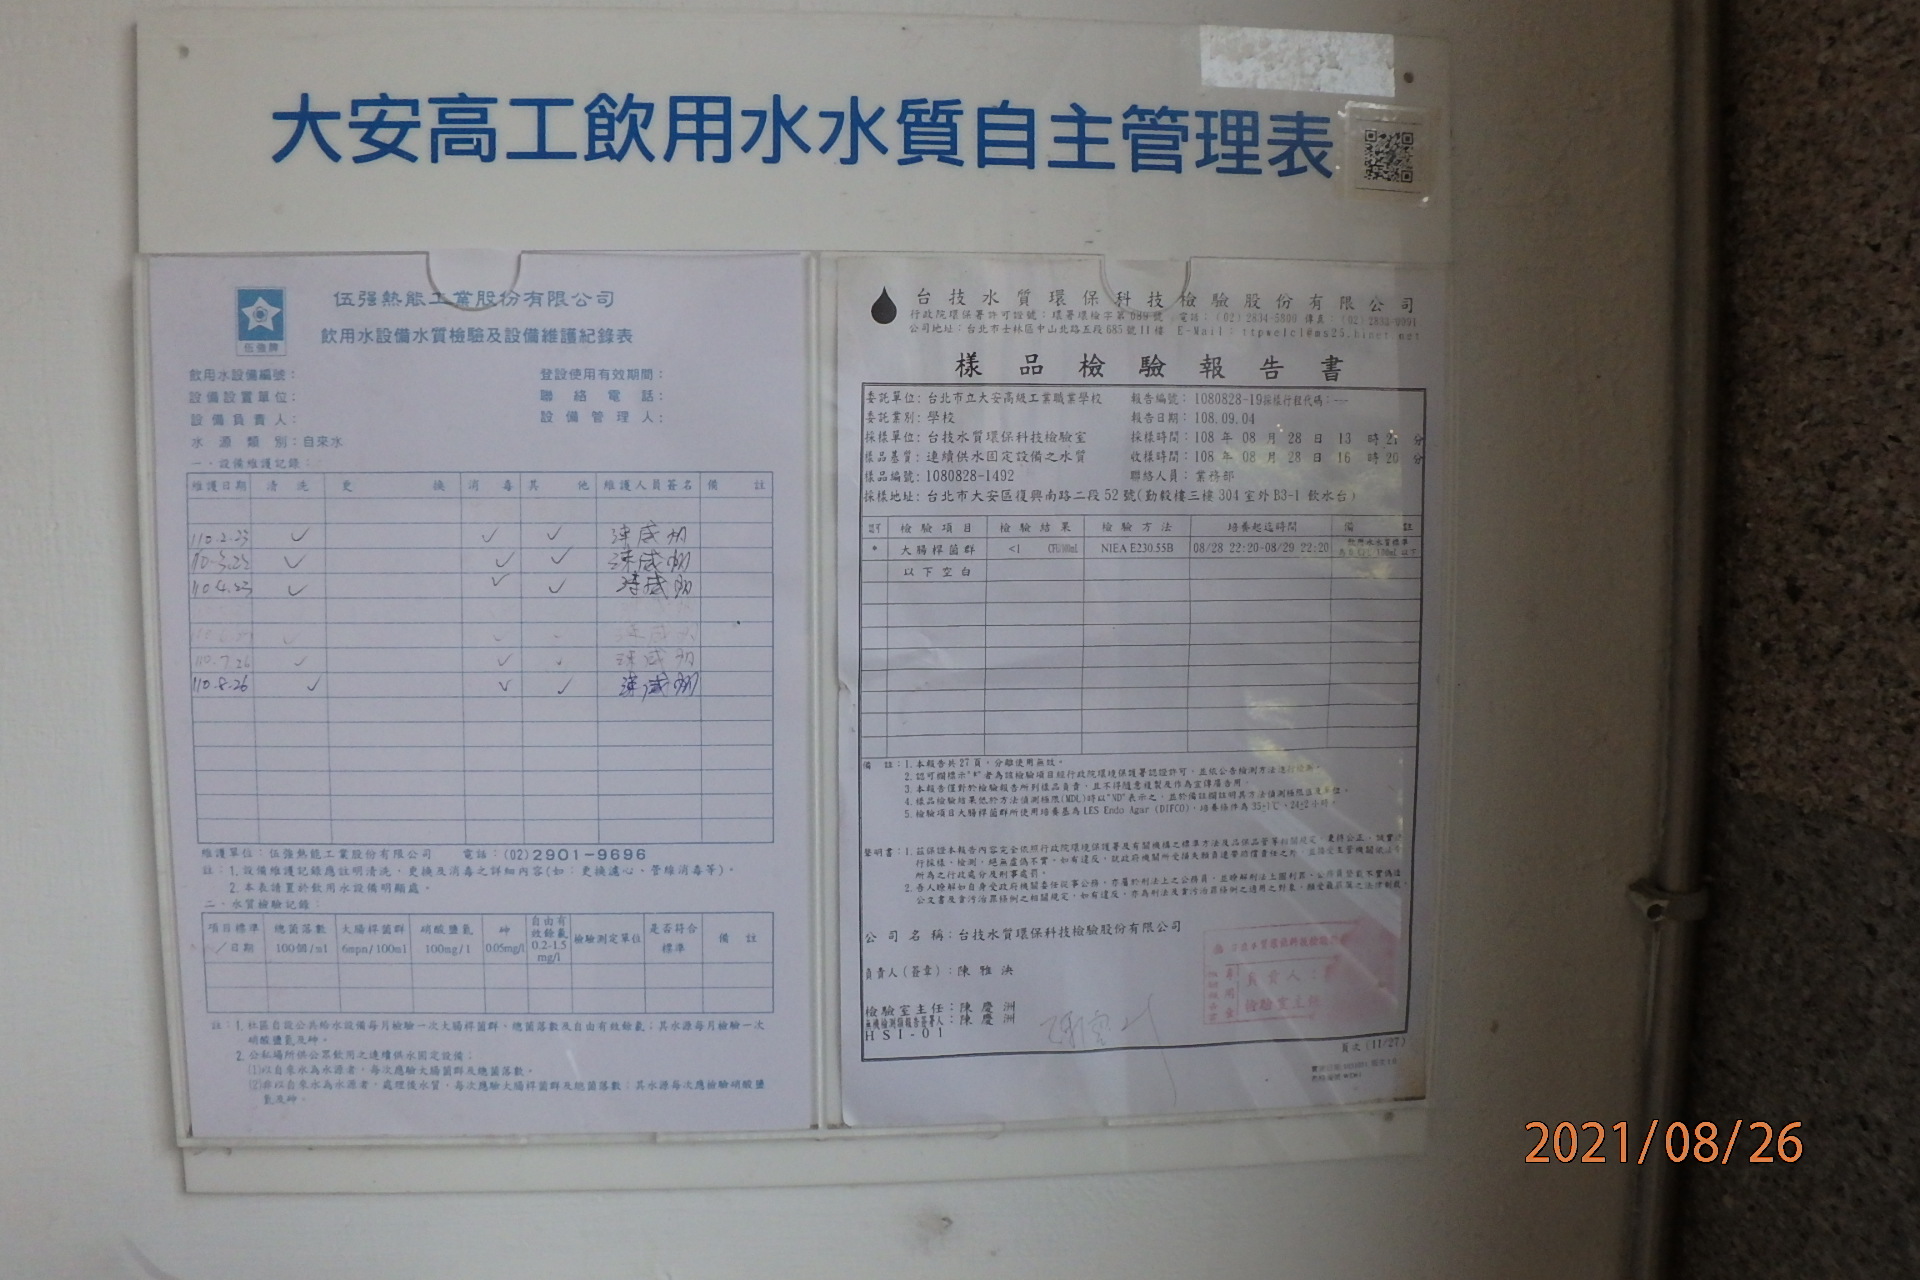 大安高工飲用水水質自主管理表
伍強牌
伍强熱能工業股份有限公司
飲用水設備水質檢驗及設備維護紀錄表
飲用水設備編號：
登設使用有效期間：
設備設置單位：
聯絡電話：
設備負責人：
設備管理人：
水源類別：自來水
一、設備維護記錄：
維護日期 清洗 更換 消毒 其他 維護人員簽名 備註
110.2.23 ✓ ✓ ✓
✓ ✓ ✓
110.4.23 ✓ ✓ ✓
110.7.26 ✓ ✓ ✓
110.8.26 ✓ ✓ ✓
維護單位：伍強熱能工業股份有限公司 電話：(02)2901-9696
註：1. 設備維護記錄應註明清洗、更換及消毒之詳細內容(如：更換濾心、管線消毒等)。
2. 本表請置於飲用水設備明顯處。
二、水質檢驗記錄：
項目標準／日期 總菌落數 100個/ml 大腸桿菌群 6mpn/100ml 硝酸鹽氮 100mg/l 砷 0.05mg/l 自由有效餘氯 0.2-1.5 mg/l 檢驗測定單位 是否符合標準 備註
註：1. 社區自設公共給水設備每月檢驗一次大腸桿菌群、總菌落數及自由有效餘氯；其水源每月檢驗一次
硝酸鹽氮及砷。
2. 公私場所供公眾飲用之連續供水固定設備：
(1)以自來水為水源者，每次應驗大腸桿菌群及總菌落數。
(2)非以自來水為水源者，處理後水質，每次應驗大腸桿菌群及總菌落數；其水源每次應檢驗硝酸鹽
氮及砷。
台技水質環保科技檢驗股份有限公司
行政院環保署許可證號：環署環檢字第089號 電話：(02)2834-5800 傳真：(02)2832-9091
公司地址：台北市士林區中山北路五段685號11樓 E-Mail：ttpwclcl@ms25.hinet.net
樣品檢驗報告書
委託單位：台北市立大安高級工業職業學校 報告編號：1080828-19採樣行程代碼：---
委託業別：學校 報告日期：108.09.04
採樣單位：台技水質環保科技檢驗室 採樣時間：108 年 08 月 28 日 13 時 分
樣品基質：連續供水固定設備之水質 收樣時間：108 年 08 月 28 日 16 時 20 分
樣品編號：1080828-1492 聯絡人員：業務部
採樣地址：台北市大安區復興南路二段52號(勤毅樓三樓304室外B3-1飲水台)
認可 檢驗項目 檢驗結果 檢驗方法 培養起迄時間 備註
* 大腸桿菌群 <1 CFU/100mL NIEA E230.55B 08/28 22:20-08/29 22:20 飲用水水質標準
以下空白
備註：1. 本報告共27頁，分離使用無效。
2. 認可欄標示"*"者為該檢驗項目經行政院環境保護署認證許可，並依公告檢測方法進行檢驗。
3. 本報告僅對於檢驗報告所列樣品負責，且不得隨意複製及作為宣傳廣告用。
4. 樣品檢驗結果低於方法偵測極限(MDL)時以"ND"表示之，並於備註欄註明其方法偵測極限值及單位。
5. 檢驗項目大腸桿菌群所使用培養基為LES Endo Agar (DIFCO)，培養條件為35±1℃、24±2小時。
聲明書：1. 茲保證本報告內容完全依照行政院環境保護署及有關機構之標準方法及品保品管等相關規定，秉持公正、誠實
行採樣、檢測，絕無虛偽不實。如有違反，就政府機關所受損失願負連帶賠償責任之外，並接受主管機關依法
所為之行政處分及刑事處罰。
2. 吾人瞭解如自身受政府機關委任從事公務，亦屬於刑法上之公務員，並瞭解刑法上圖利罪、公務員登載不實偽造
公文書及貪污治罪條例之相關規定，如有違反，亦為刑法及貪污治罪條例之適用之對象，願受最嚴厲之法律制裁。
公司名稱：台技水質環保科技檢驗股份有限公司
負責人(簽章)：陳雅泱
檢驗室主任：陳慶洲
無機檢測類報告簽署人：陳慶洲
HSI-01
負責人
檢驗室主任
頁次(11/27)
2021/08/26